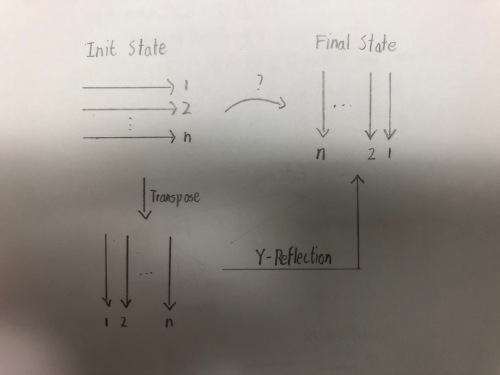 Init State
Final State
1
2
⋮
n
?
...
n 2 1
Transpose
...
1 2 n
Y-Reflection